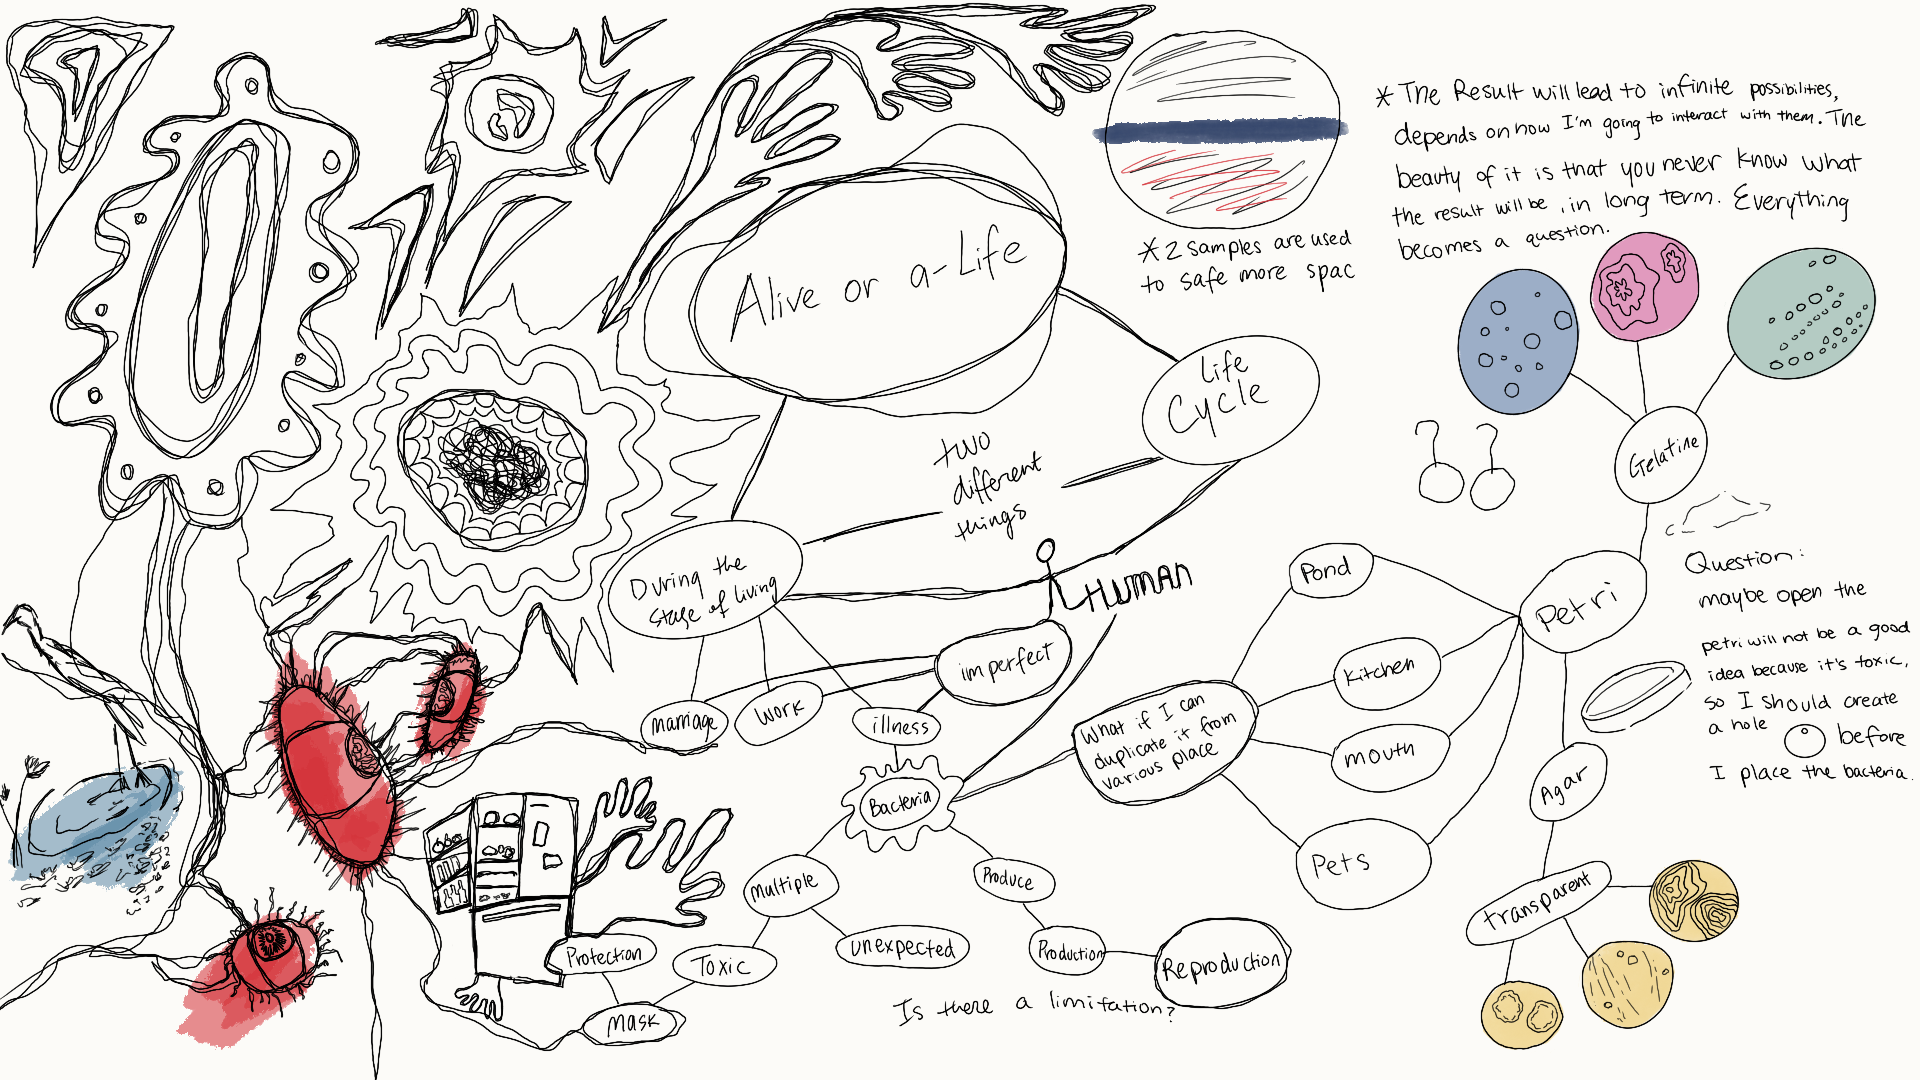 * The Result will lead to infinite possibilities,
depends on how I'm going to interact with them. The
beauty of it is that you never know what
the result will be, in long term. Everything
becomes a question.
* 2 samples are used
to safe more spac
Alive or a-Life
Life
Cycle
two
different
things
During the
stage of living
HUMAN
imperfect
marriage
work
illness
Bacteria
What if I can
duplicate it from
various place
Pond
Kitchen
mouth
Pets
Petri
Gelatine
Question:
maybe open the
petri will not be a good
idea because it's toxic,
so I should create
a hole
before
I place the bacteria.
Agar
transparent
multiple
Produce
unexpected
Toxic
Protection
mask
Production
Reproduction
Is there a limitation?